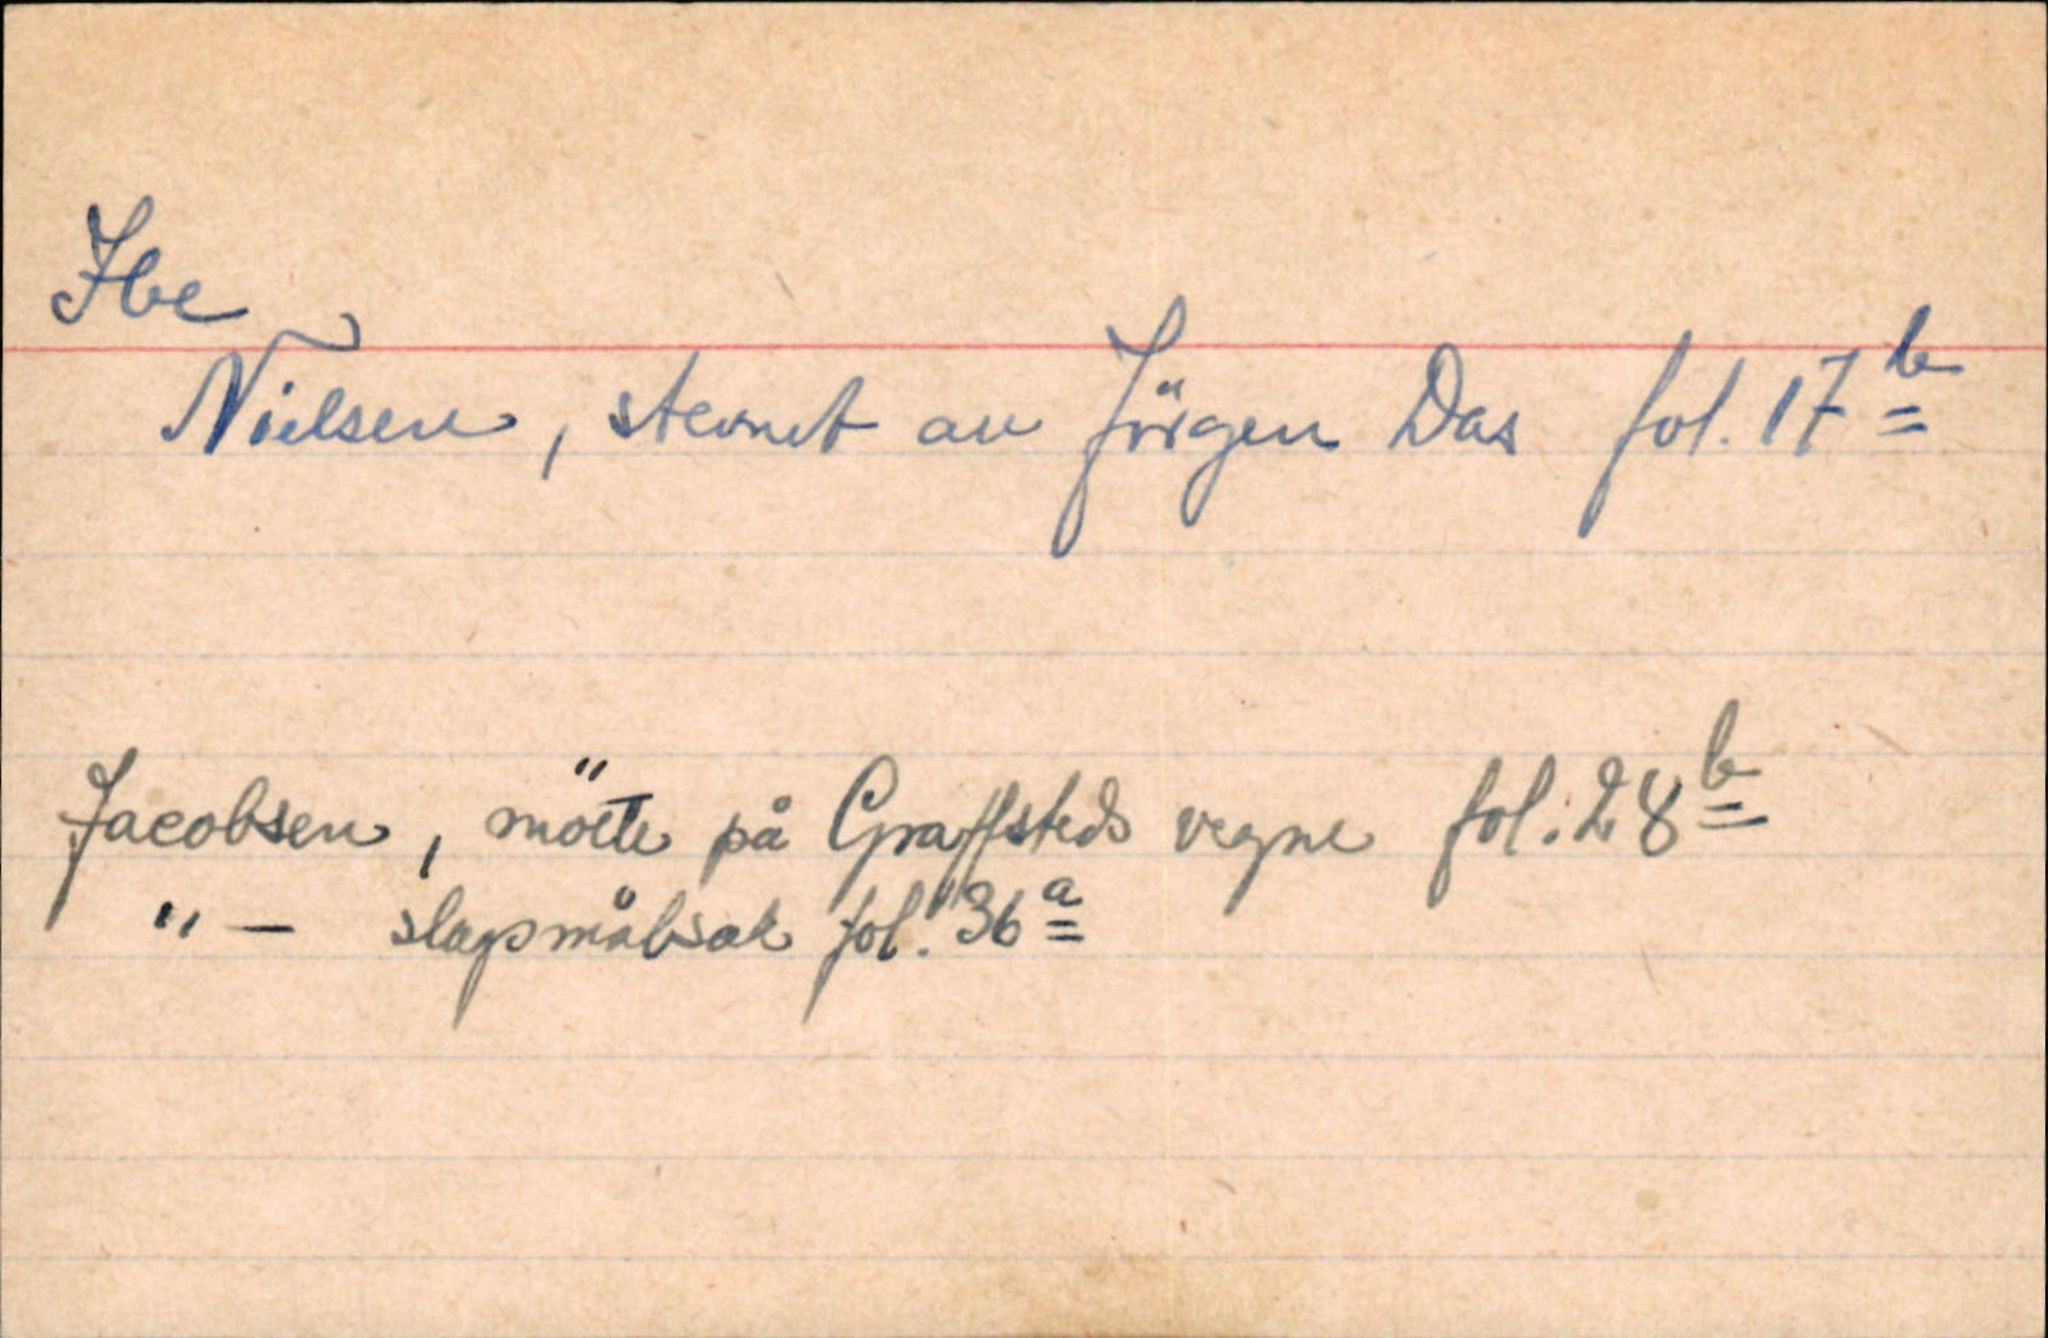 Ibe
Nielsen, stevnet av Jörgen Das fol. 17b
Jacobsen, mötte på Graffsteds vegne fol. 28b
"— slagsmålsak fol. 36a